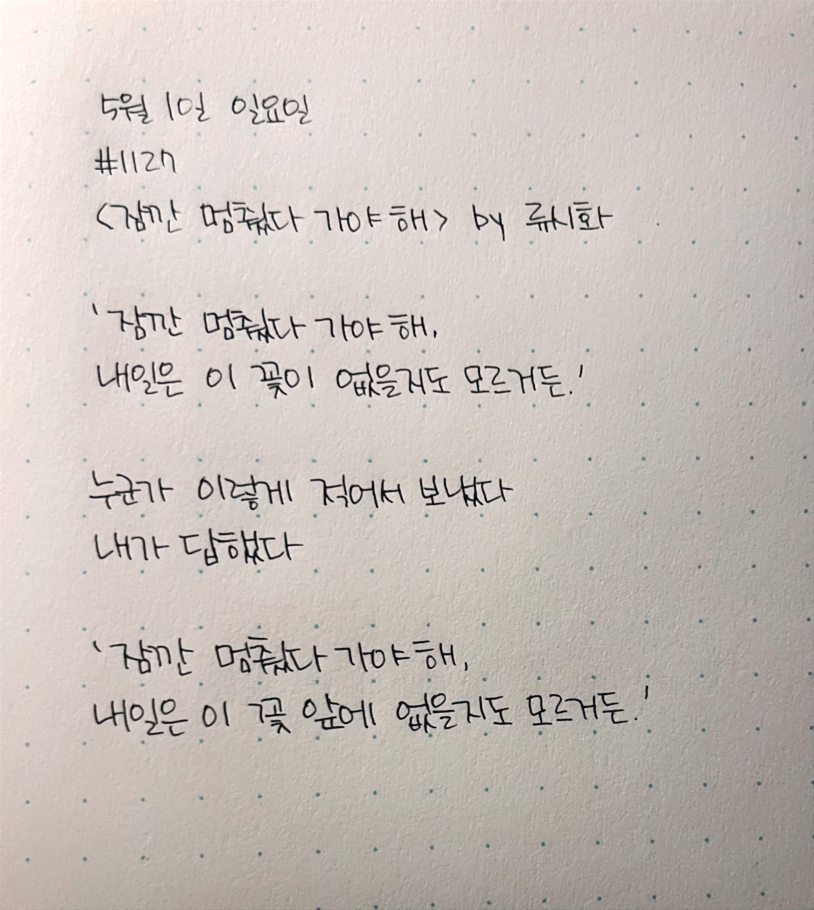 5월 1일 일요일
#1127
<잠깐 멈췄다 가야 해> by 류시화
'잠깐 멈췄다 가야 해,
내일은 이 꽃이 없을지도 모르거든.'
누군가 이렇게 적어서 보냈다
내가 답했다
'잠깐 멈췄다 가야 해,
내일은 이 꽃 앞에 없을지도 모르거든.'